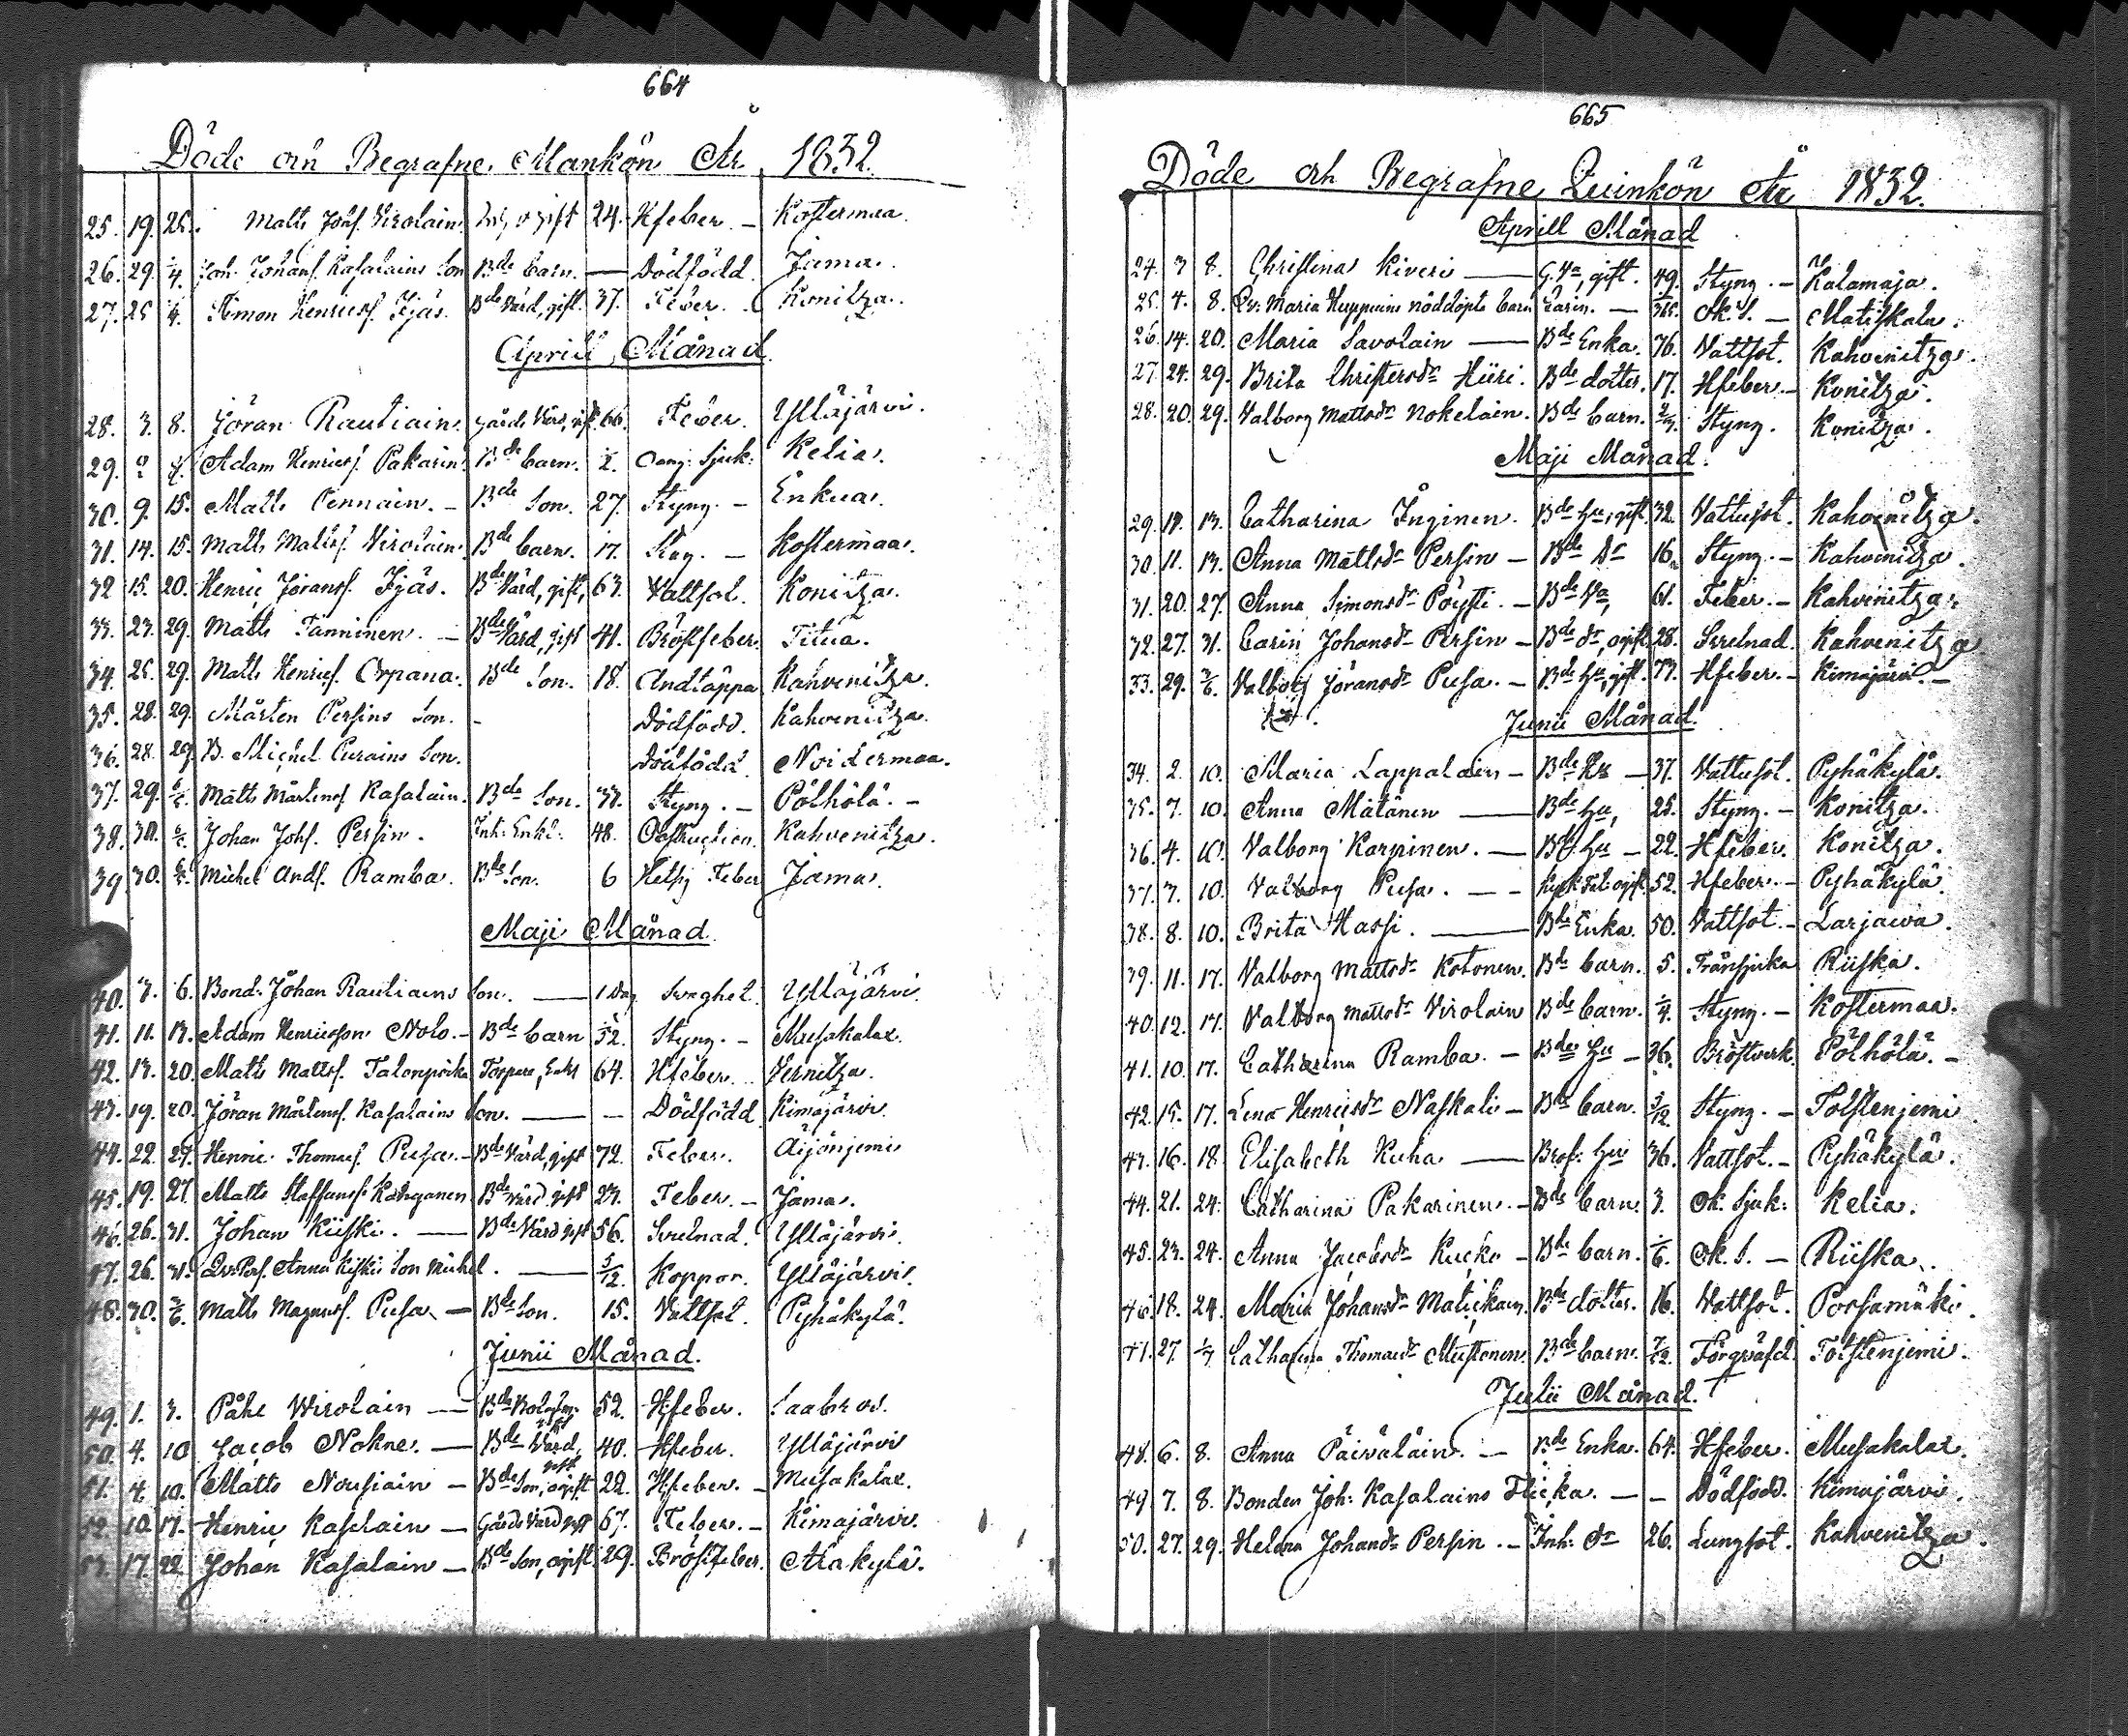 664
Döde och Begrafne Mankön År 1832.
25. 19. 25. Matts Johsf. Virolain. gift 24. Hfeber. - Kostermaa.
26. 29. 1/4 Johansf. Kasalains Son Bde barn. — Dödfödd. Jama.
27. 25 1/4. Simon Henricsf. Ijäs. Bde Värd, gift. 37. Feber. Konitza.
Aprill Månad.
28. 3. 8. Jöran Rautiain. Gårds Värd, gift 66. Feber. Ylläjärvi.
29. Adam Henricsf. Pakarin. Bde barn. Sjuk. Kelia.
30. 9. 15. Matts Pennain. - Bde Son. 27. Styng. - Enkua.
31. 14. 15. Matts Mattsf. Virolain. Bde barn. 17. - Kostermaa.
32 15. 20. Henric Joransf. Ijäs. Bde Värd, gift, 63. Vattsot. Konitza.
33. 23. 29. Matts Tanninen. - Bde Värd, gift 41. Bröstfeber. Titua.
34. 25. 29. Matts Henricsf. Orpana. Bde Son. 18. Andtäppa Kahvenitza.
35. 28. 29. Mårten Persins Son. - Dödfödd. Kahvenitza.
36. 28. 29. B. Michel Purains Son. Dödfödd. Noidermaa.
37. 29. Matts Mårtensf. Kasalain. Bde Son. 37. Styng. - Pölhölä. -
38. 30. Johan Johsf. Persin. Inh. Enkl. 48. Obstruction. Kahvenitza.
39 30. Michel Andsf. Ramba. Bde Son. 6 Hetsig Feber Jama.
Maji Månad
40. 3. 6. Bond. Johan Rautiains Son. — 1 Dag Svaghet. Ylläjärvi.
41. 11. 13. Adam Henricsson Nolo. - Bde barn 1/52. Styng. - Musakalax.
42. 13. 20. Matts Mattsf. Talonpoika Torpare, Enkl 64. Hfeber. Vernitza.
43. 19. 20. Jöran Mårtensf. Kasalains Son. — - Dödfödd Kimajärvi.
44. 22. 27. Henric Thomasf. Pusa. - Bde Värd, gift 72. Feber. Äijönjemi
45. 19. 27. Matts Staffansf. Kähganen Bde Värd gift 23. Feber. - Jama.
46. 26. 31. Johan Kiiski. — Bde Värd gift 56. Svulnad. Ylläjärvi.
47. 26. 31. Anna Kiskis Son Michel. — 5/12. Koppor. Ylläjärvi.
48. 30. 3/6. Matts Magnusf. Pusa. — Bde Son. 15. Vattsot. Pyhäkylä.
Junii Månad.
49. 1. 3. Påhl Wirolain — Bde Bolagsm. 52. Hfeber. Saabros.
50. 4. 10 Jacob Nokne. — Bde Värd, gift 40. Hfeber. Ylläjärvi
51. 4. 10. Matts Nousiain - Bde Son, ogift 22. Hfeber. - Musakalax.
52. 10. 17. Henric Kasalain — Gårds Värd gift 67. Feber. - Kimajärvi.
53. 17. 22. Johan Kasalain — Bde Son, ogift. 29. Bröstfeber. Alakylä.
665
Döde och Begrafne Qvinkön År 1832.
Aprill Månad
24. 3 8. Christina Kiveri — G. Va, gift. 49. Styng. - Kalamaja.
25. 4. 8. Qv. Maria Huppuins nöddöpte barn Carin. — 1/365. Ok. S. - Matiskala.
26. 14. 20. Maria Savolain — Bde Enka. 76. Vattsot. Kahvenitza.
27. 24. 29. Brita Christersdr Hiiri. Bde dotter. 17. Hfeber. - Konitza.
28. 20. 29. Valborg Mattsdr Nokelain. Bde barn. Styng. Konitza.
Maji Månad.
29. 13. Catharina Inginen. Bde Hu, gift 32. Vattusot. Kahvenitza.
30. 11. 13. Anna Mattsdr Persin - Bde Dr 16. Styng. - Kahvenitza.
31. 20. 27. Anna Simonsdr Pöysti. - Bde Va, 61. Feber. - Kahvenitza.
32. 27. 31. Carin Johansdr Persin - Bde dr, ogift 28. Svulnad. Kahvenitza
33. 29. 3/6. Valborg Joransdr Pusa. - Bde Hu, gift. 77. Hfeber. - Kimajärvi. -
Junii Månad.
34. 2. 10. Maria Lappalain - Bde - 37. Vattusot. Pyhäkylä.
35. 7. 10. Anna Mätänen — Bde Hu, 25. Styng. - Konitza.
36. 4. 10. Valborg Karpinen. — Bde Hu - 22. Hfeber. Konitza.
37. 7. 10. Valborg Pusa. - - ogift. 52. Hfeber. - Pyhäkylä.
38. 8. 10. Brita Hassi. — Bde Enka. 50. Vattsot. - Larjawa.
39. 11. 17. Valborg Mattsdr Kotonen. Bde barn. 5. Fransjuka Riiska.
40. 12. 17. Valborg Mattsdr Virolain Bde barn. 1/4. Styng. - Kostermaa.
41. 10. 17. Catharina Ramba. - Bdes Hu - 36. Bröstverk. Pölhölä. -
42. 15. 17. Lena Henricsdr Naskali - Bde barn. 3/12. Styng. - Tolstenjemi
43. 16. 18 Elisabeth Kuha — Hu 36. Vattsot. - Pyhäkylä.
44. 21. 24. Catharina Pakarinen. - Bde barn. 3. Ok. Sjuk: Kelia.
45. 23. 24. Anna Jacobsdr Kucko - Bde barn. 1/6. Ok. S. - Riiska.
46. 18. 24. Maria Johansdr Matickain. Bde dotter. 16. Vattsot. Porsamäki.
47. 27. 1/7 Catharina Thomasdr Mustonen. Bde barn. 7/12. Förqväfd. Tolstenjemi.
Julii Månad.
48. 6. 8. Anna Päiväläin. - Bde Enka. 64. Hfeber. Musakalax.
49. 7. 8. Bonden Joh: Kasalains Flicka. - - Dödfödd. Kimajärvi.
50. 27. 29. Helena Johansdr Persin. - Inh. dr 26. Lungsot. Kahvenitza.